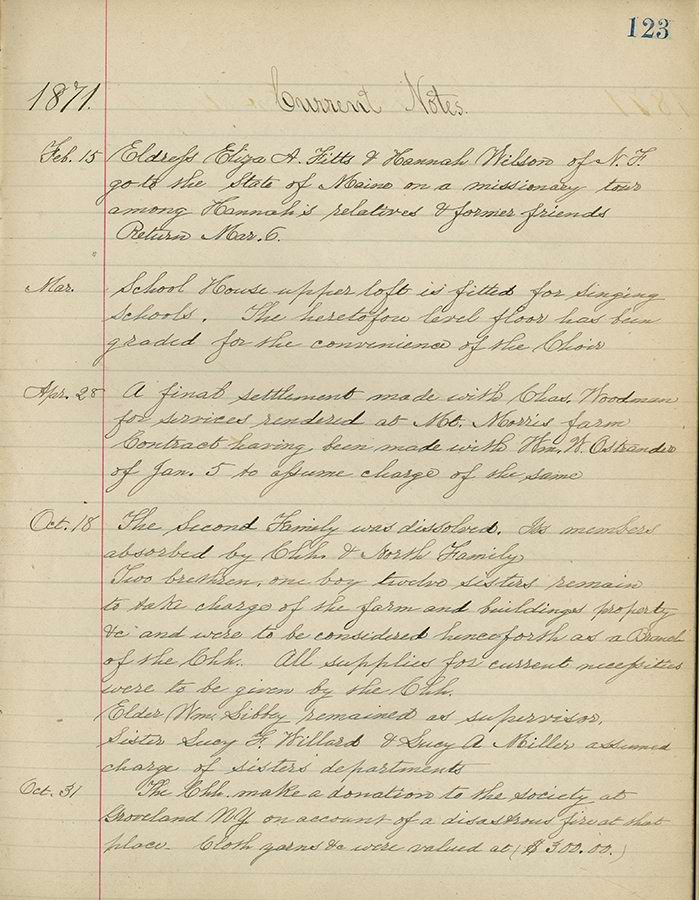 123
1871. Current Notes.
Feb. 15 Eldress Eliza A. Fitts & Hannah Wilson of N. F.
go to the State of Maine on a missionary tour
among Hannah's relatives & former friends
Return Mar. 6.
Mar. School House upper loft is fitted for singing
schools. The heretofore level floor has been
graded for the convenience of the Choir
Apr. 28 A final settlement made with Chas. Woodman
for services rendered at Mt. Morris farm
Contract having been made with Wm. W. Ostrander
of Jan. 5 to assume charge of the same
Oct. 18 The Second Family was dissolved. Its members
absorbed by Chh. & North Family
Two brethren, one boy twelve sisters remain
to take charge of the farm and buildings property
&c and were to be considered henceforth as a Branch
of the Chh. All supplies for current necessities
were to be given by the Chh.
Elder Wm. Sibley remained as supervisor,
Sister Lucy F. Willard & Lucy A Miller assumed
charge of sisters departments
Oct. 31 The Chh. make a donation to the society at
Groveland NY on account of a disastrous fire at that
place. Cloth yarns &c were valued at ($300.00.)